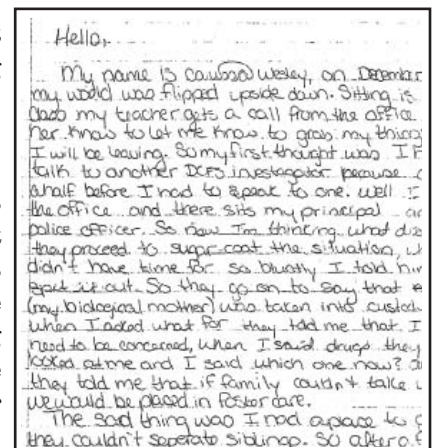 Hello,
My name is Wesley, on December
my world was flipped upside down. Sitting is
class my teacher gets a call from the office
her know to let me know to grab my things
I will be leaving. So my first thought was I h
talk to another DCFS investagator because
a half before I had to speak to one. well I
the office and there sits my principal
police officer. So now I'm thinking what di
they proceed to sugar-coat the situation, w
didn't have time for so bluntly I told
spit it out. So they go on to say that
(my biological mother) was taken into custod
when I asked what for they told me that I
need to be concerned, when I said drugs they
looked at me and I said which one now?
they told me that if family couldn't take
we would be placed in foster care.
The sad thing was I had a place to g
they couldn't seperate siblings. So after